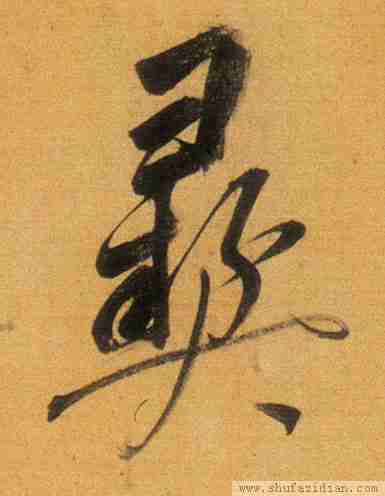 彝
www.shufazidian.com